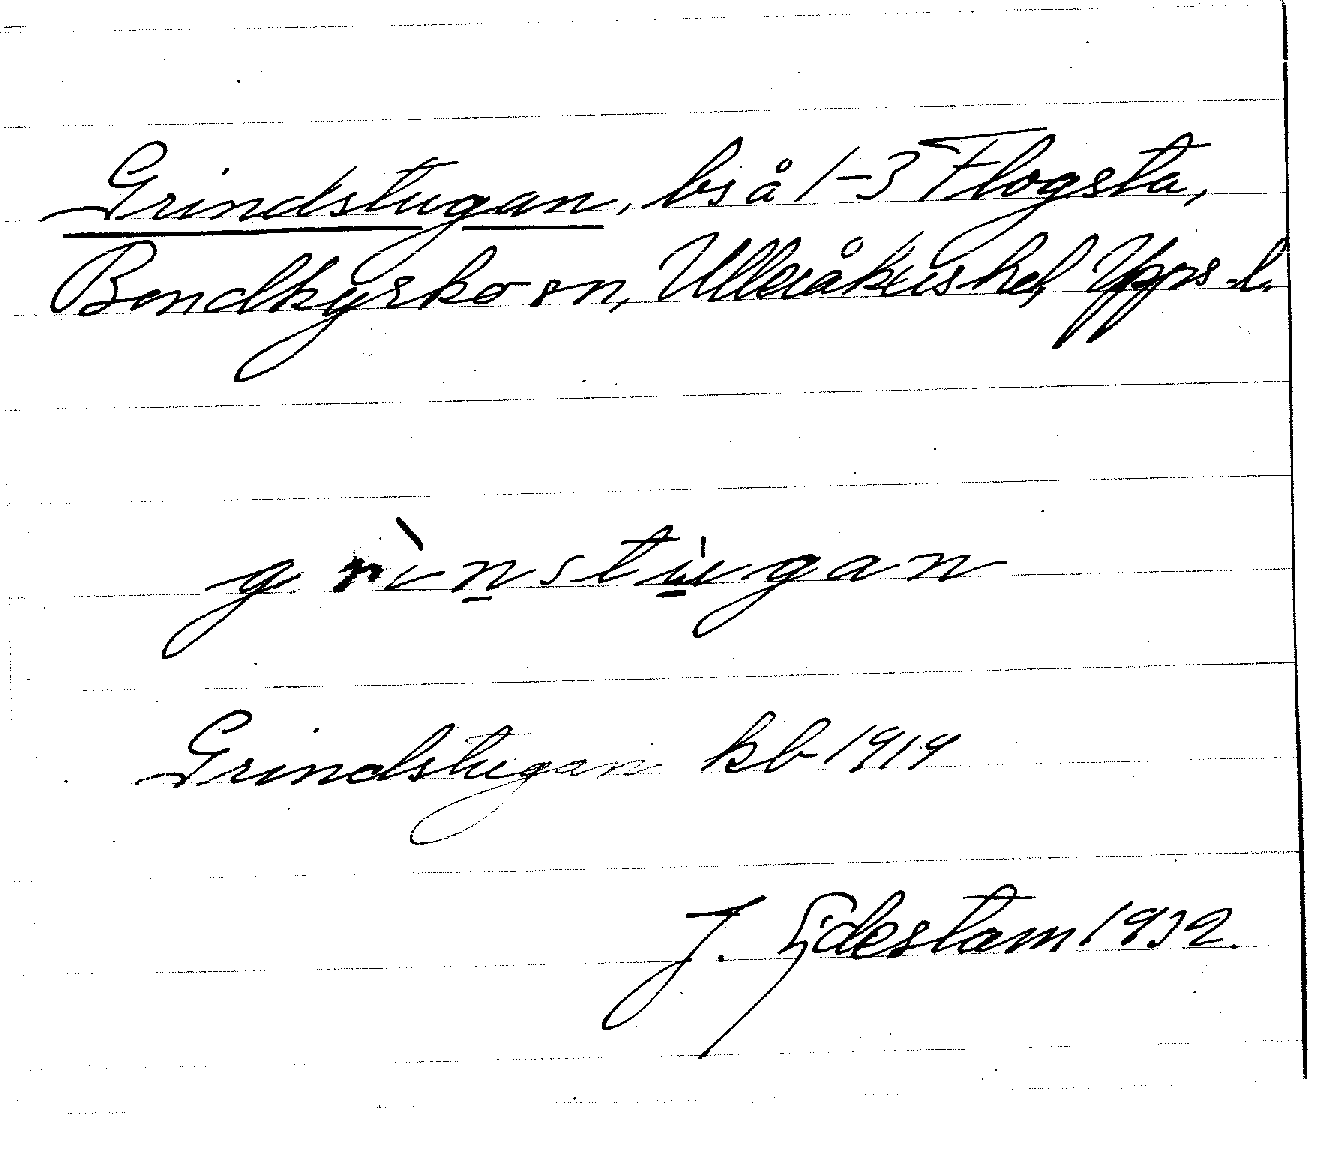 Grindstugan, bs å 1-3 Flogsta,
Bondkyrko sn, Ulleråkers hd, Upps. l.
grìnstùgan
Grindstugan kb 1919
J. Ejdestam 1932.